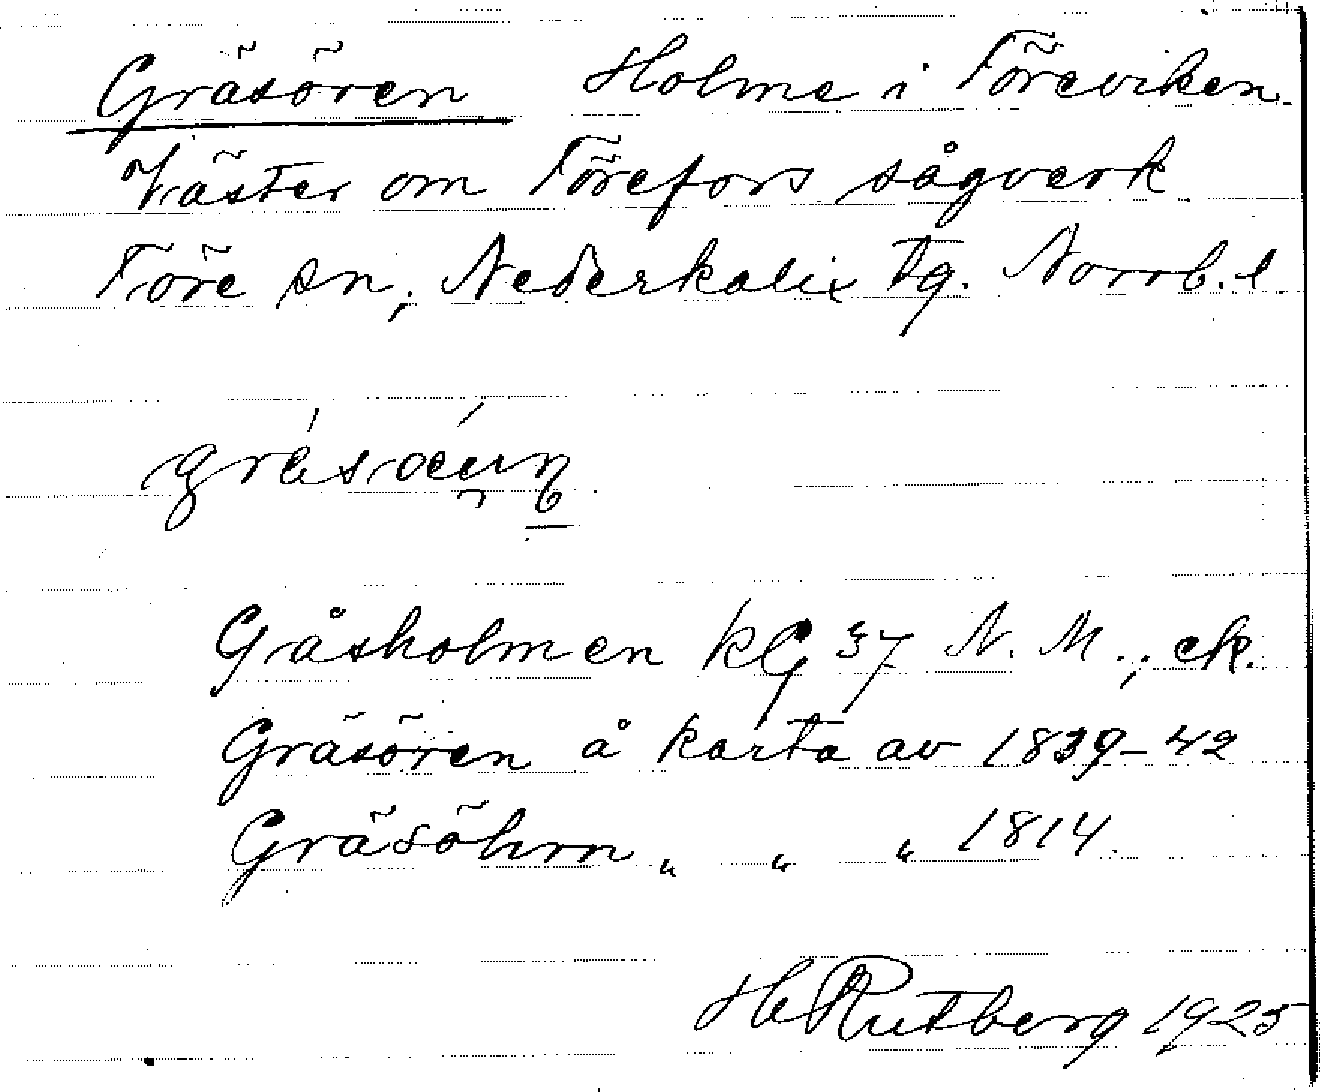 Gräsören Holme i Töreviken.
Väster om Törefors sågverk
Töre sn, Nederkalix tg. Norrb. l.
Gåsholmen kG 37 N. M., ek.
Gräsören å karta av 1839-42
Gräsöhrn " " " 1814.
H Rutberg 1925